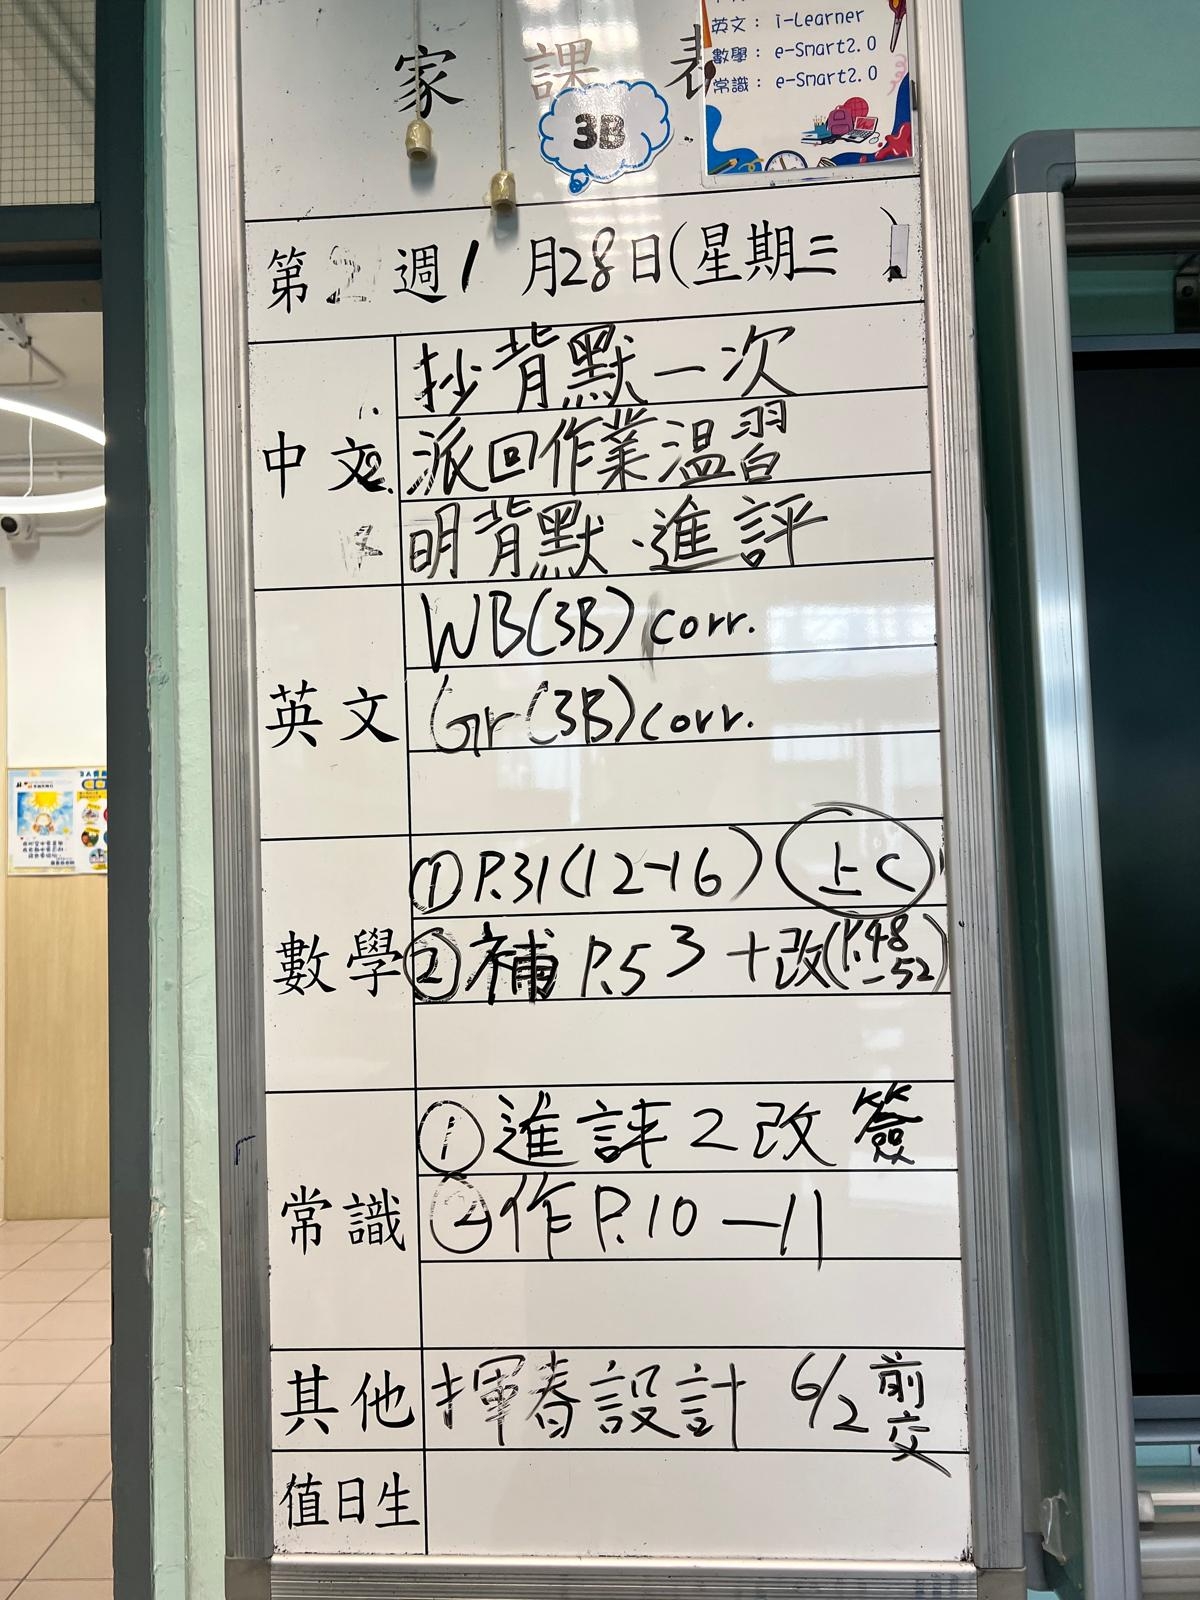 英文： i-Learner
數學： e-Smart2.0
常識： e-Smart2.0
家課表
3B
第2週1月28日(星期三)
中文
1. 抄背默一次
2. 派回作業溫習
明背默、進評
英文
WB(3B) corr.
Gr(3B) corr.
數學
① P.31(12-16) 上C
② 補 P.53+改(P.48-52)
常識
① 進評2改 簽
② 作 P.10—11
其他
揮春設計 6/2前交
值日生